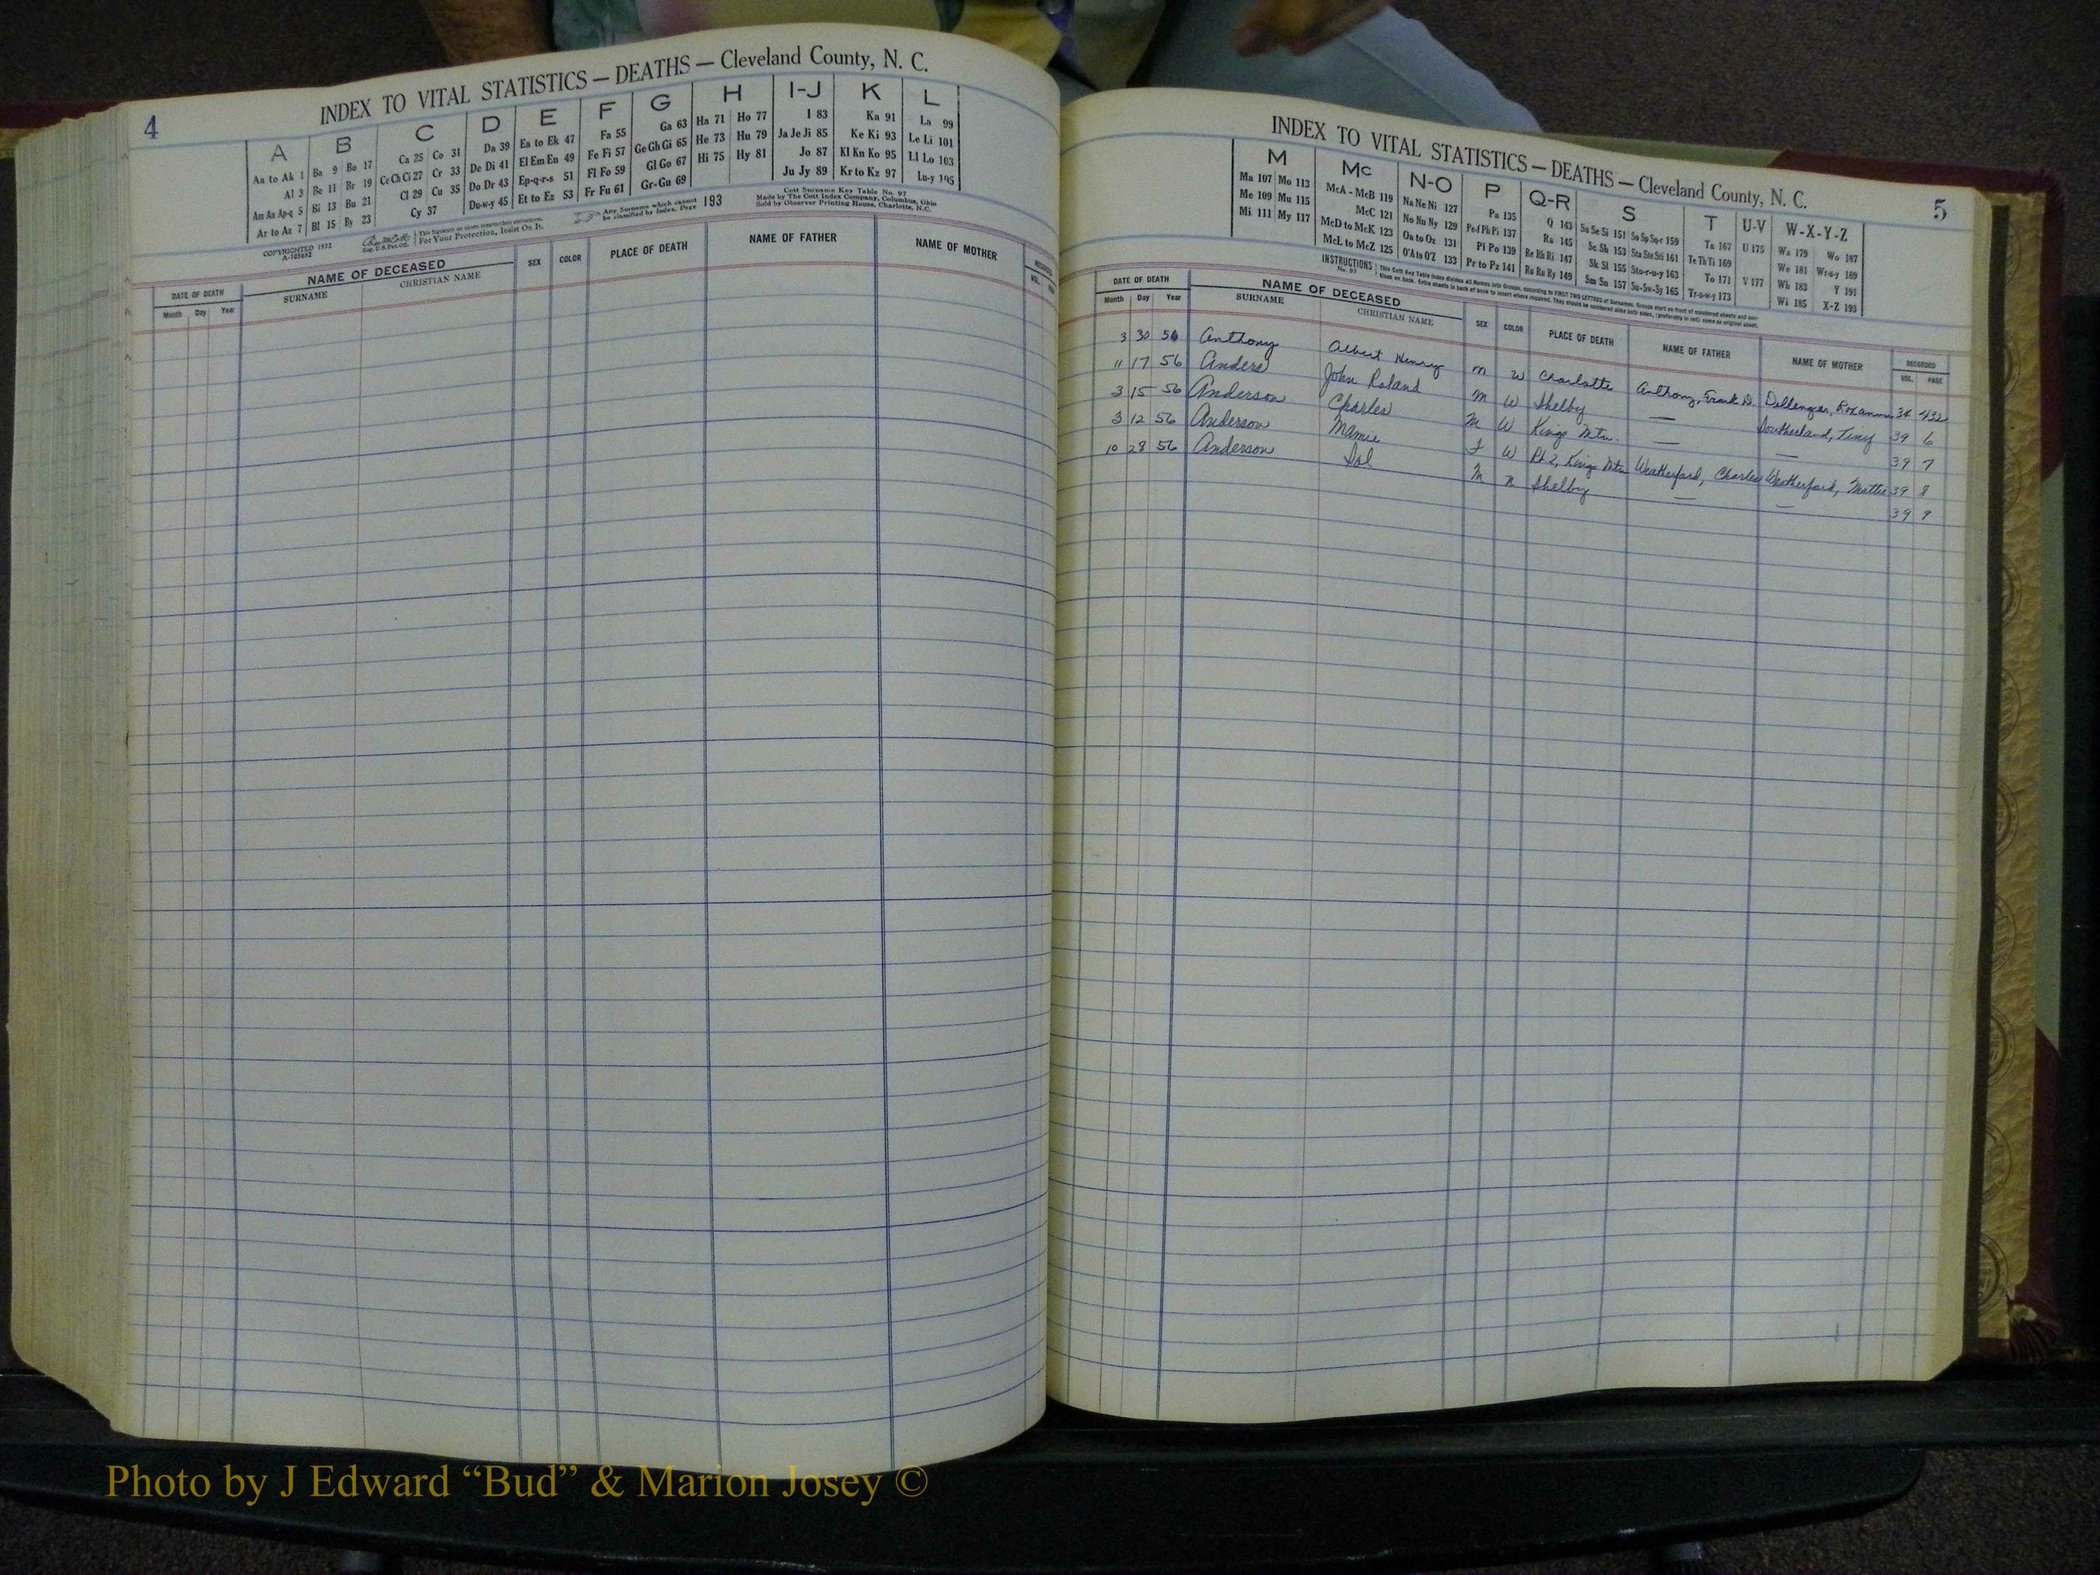 4
INDEX TO VITAL STATISTICS — DEATHS — Cleveland County, N. C.
A B C D E F G H I-J K L
Aa to Ak 1 Ba 9 Bo 17 Ca 25 Co 31 Da 39 Ea to Ek 47 Fa 55 Ga 63 Ha 71 Ho 77 I 83 Ka 91 La 99
Al 3 Be 11 Br 19 Ce Ch Ci 27 Cr 33 De Di 41 El Em En 49 Fe Fi 57 Ge Gh Gi 65 He 73 Hu 79 Ja Je Ji 85 Ke Ki 93 Le Li 101
Am An Ap-q 5 Bi 13 Bu 21 Cl 29 Cu 35 Do Dr 43 Ep-q-r-s 51 Fl Fo 59 Gl Go 67 Hi 75 Hy 81 Jo 87 Kl Kn Ko 95 Ll Lo 103
Ar to Az 7 Bl 15 By 23 Cy 37 Du-w-y 45 Et to Ez 53 Fr Fu 61 Gr-Gu 69 Ju Jy 89 Kr to Kz 97 Lu-y 105
COPYRIGHTED 1932
A-103632
For Your Protection, Insist On It.
Any Surname which cannot be classified by Index, Page 193
Cott Surname Key Table No. 97
Made by The Cott Index Company, Columbus, Ohio
Sold by Observer Printing House, Charlotte, N.C.
DATE OF DEATH NAME OF DECEASED SEX COLOR PLACE OF DEATH NAME OF FATHER NAME OF MOTHER
Month Day Year SURNAME CHRISTIAN NAME VOL.
INDEX TO VITAL STATISTICS — DEATHS — Cleveland County, N. C.
5
M Mc N-O P Q-R S T U-V W-X-Y-Z
Ma 107 Mo 113 McA - McB 119 Na Ne Ni 127 Pa 135 Q 143 Sa Se Si 151 So Sp Sq-r 159 Ta 167 U 175 Wa 179 Wo 187
Me 109 Mu 115 McC 121 No Nu Ny 129 Pe-f Ph Pi 137 Ra 145 Sc Sh 153 Sta Ste Sti 161 Te Th Ti 169 We 181 Wr-u-y 189
Mi 111 My 117 McD to McK 123 Oa to Oz 131 Pl Po 139 Re Rh Ri 147 Sk Sl 155 Sto-r-u-y 163 To 171 V 177 Wh 183 Y 191
McL to McZ 125 O'A to O'Z 133 Pr to Pz 141 Ro Ru Ry 149 Sm Sn 157 Su-Sw-Sy 165 Tr-u-w-y 173 Wi 185 X-Z 193
INSTRUCTIONS No. 97
DATE OF DEATH NAME OF DECEASED SEX COLOR PLACE OF DEATH NAME OF FATHER NAME OF MOTHER RECORDED
Month Day Year SURNAME CHRISTIAN NAME VOL. PAGE
3 30 Anthony Albert Henry M W Charlotte Anthony, Frank D. Dellenger, Roxanna 34 432
11 17 56 Anders John Roland M W Shelby — Southerland, Tiny 39 6
3 15 56 Anderson Charles M W Kings Mtn. — — 39 7
3 12 56 Anderson Mamie F W Rt 2, Kings Mtn Weatherford, Charles Weatherford, Mattie 39 8
10 28 56 Anderson Sol M N Shelby — — 39 9
Photo by J Edward “Bud” & Marion Josey ©